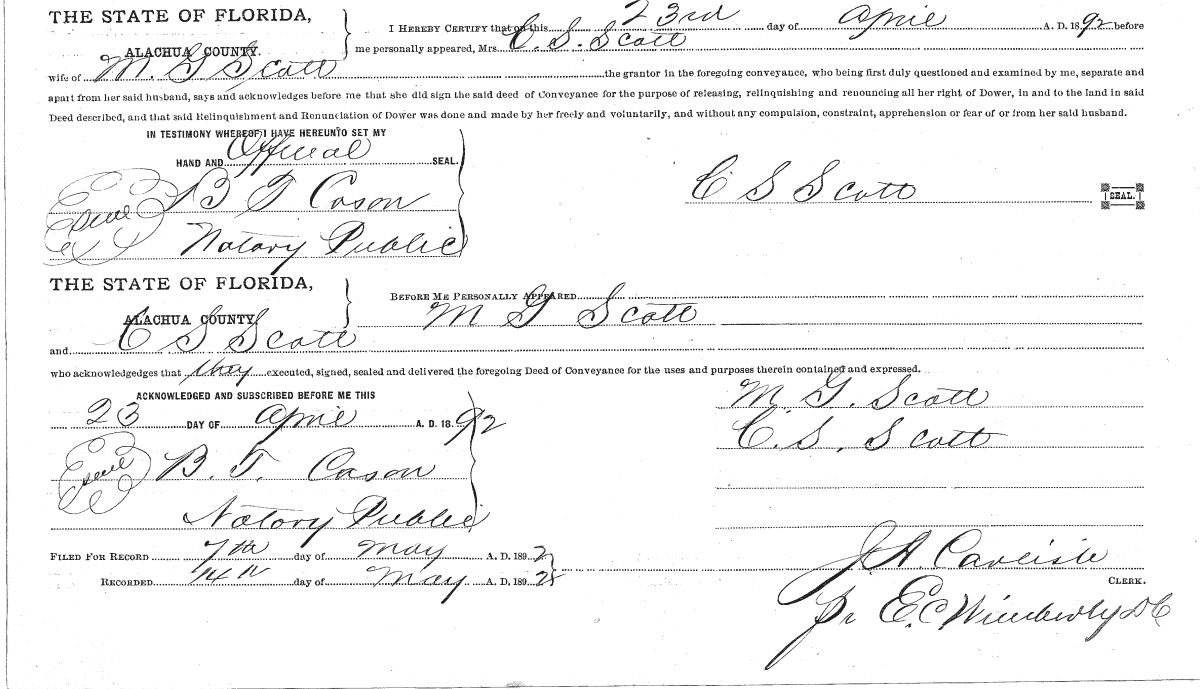 THE STATE OF FLORIDA,
ALACHUA COUNTY.
I HEREBY CERTIFY that on this 23rd day of April A. D. 1892 before
me personally appeared, Mrs. C. S. Scott
wife of M. G Scott the grantor in the foregoing conveyance, who being first duly questioned and examined by me, separate and
apart from her said husband, says and acknowledges before me that she did sign the said deed of Conveyance for the purpose of releasing, relinquishing and renouncing all her right of Dower, in and to the land in said
Deed described, and that said Relinquishment and Renunciation of Dower was done and made by her freely and voluntarily, and without any compulsion, constraint, apprehension or fear of or from her said husband.
IN TESTIMONY WHEREOF, I HAVE HEREUNTO SET MY
HAND AND Official SEAL.
Seal B T Cason
Notary Public
C S Scott SEAL.
THE STATE OF FLORIDA,
ALACHUA COUNTY
BEFORE ME PERSONALLY APPEARED
M G Scott
and C S Scott
who acknowledgedges that they executed, signed, sealed and delivered the foregoing Deed of Conveyance for the uses and purposes therein contained and expressed.
ACKNOWLEDGED AND SUBSCRIBED BEFORE ME THIS
23 DAY OF April A. D. 1892
Seal B. T. Cason
Notary Public
M. G. Scott
C. S. Scott
FILED FOR RECORD 7th day of May A. D. 1892
RECORDED 14th day of May A. D. 1892
J. A. Carlisle
CLERK.
Pr E. C Wimberly DC